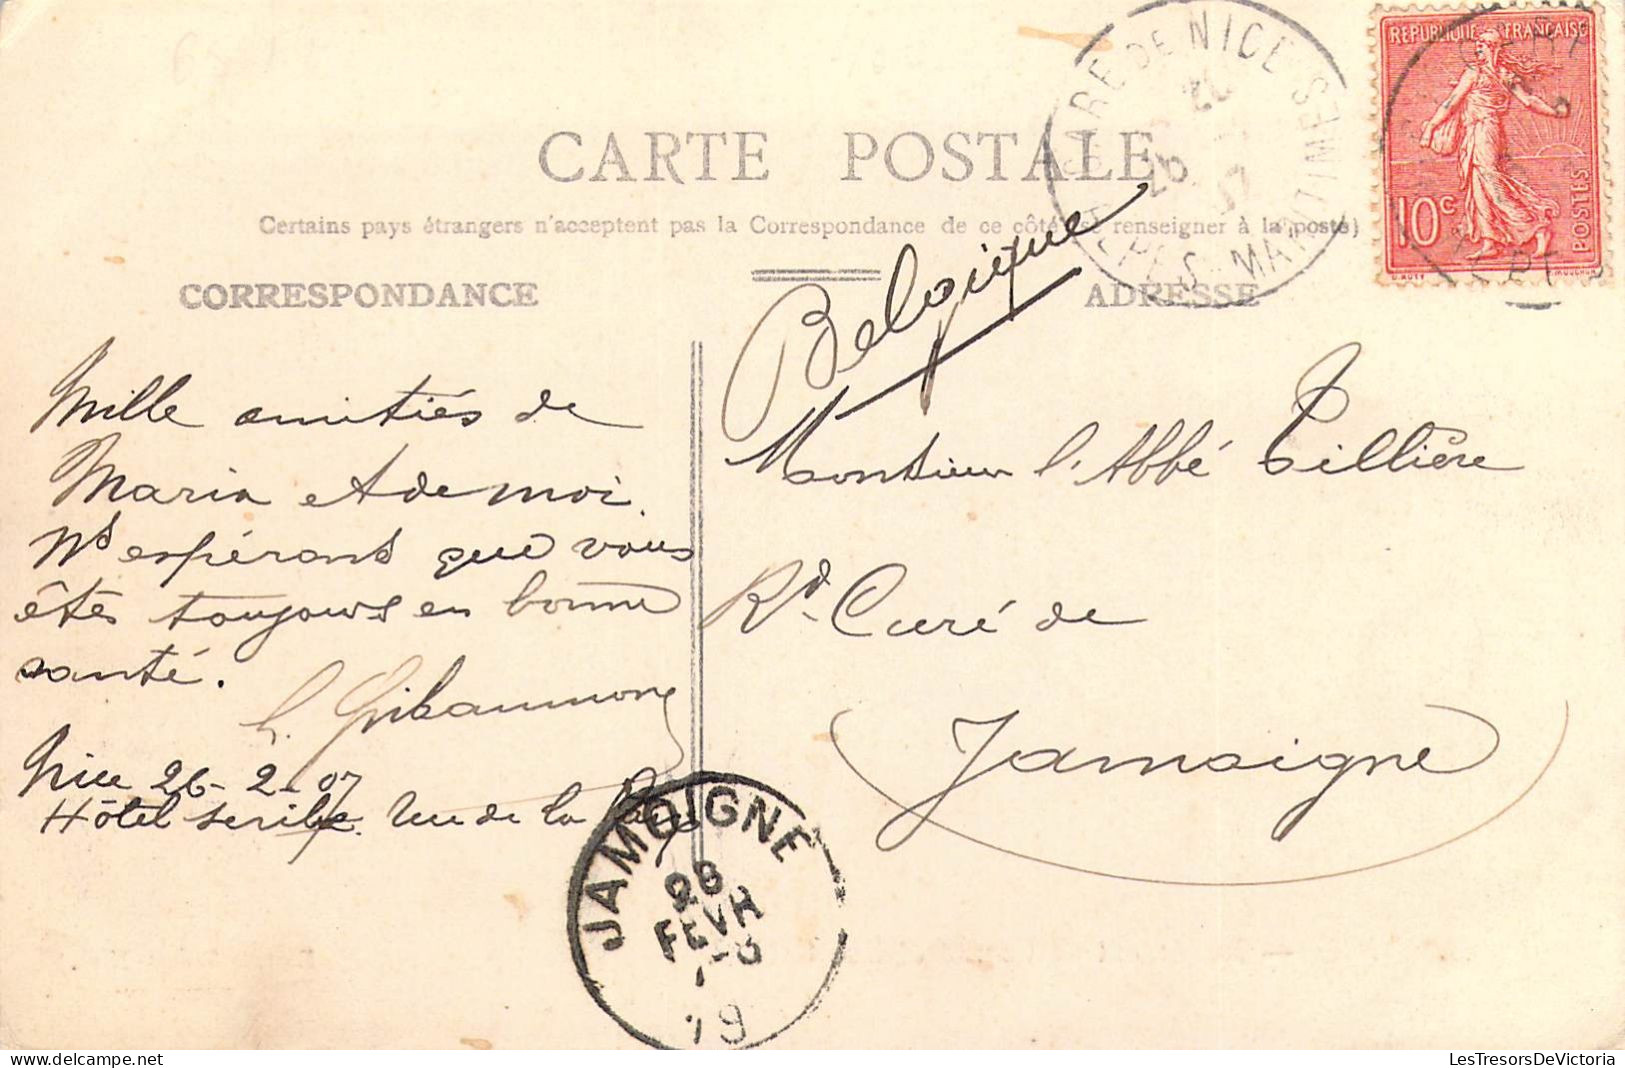 CARTE POSTALE
Certains pays étrangers n'acceptent pas la Correspondance de ce côté (se renseigner à la poste)
CORRESPONDANCE
ADRESSE
GARE DE NICE
ALPES MARITIMES
REPUBLIQUE FRANÇAISE
10c
POSTES
Belgique
Mille amitiés de
Maria et de moi
Ns espérons que vous
êtes toujours en bonne
santé.
Nice 26-2-07
Hôtel scribe. Rue de la
Monsieur l'Abbé Tillière
Rd. Curé de
Jamoigne
JAMOIGNE
28
FEVR
19
LesTresorsDeVictoria
delcampe.net